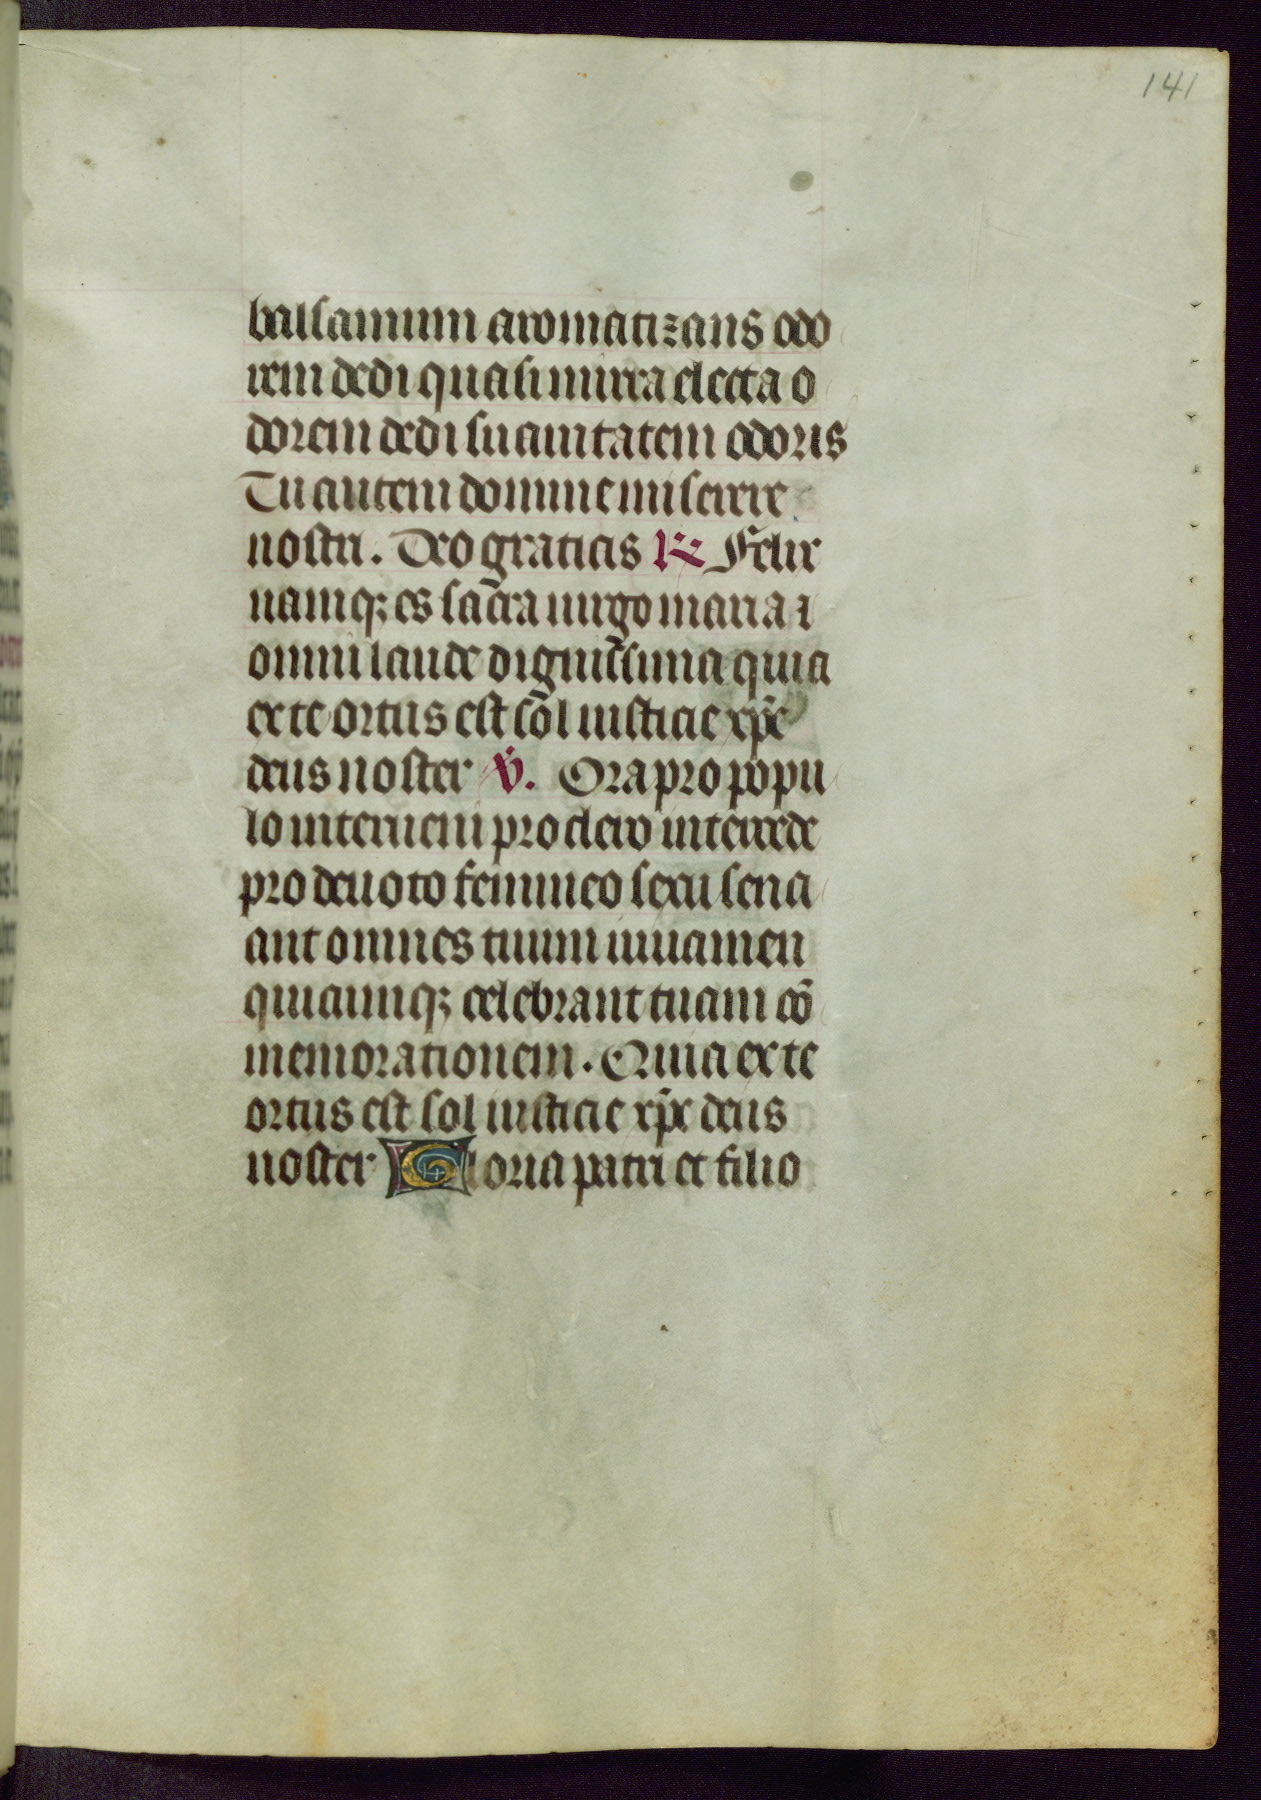 141
balsamum aromatizans odo
rem dedi quasi mirra electa o
dorem dedi suauitatem odoris
Tu autem domine miserere
nostri. Deo gratias ℟ Felix
namqꝫ es sac̄ra uirgo maria ⁊
omni laude digniss̄ima quia
ex te ortus est sōl iusticie xp̄c
deus noster ℣. Ora pro popu
lo interueni pro clero intercede
pro deuoto femineo sexu senci
ant omnes tuum iuuamen
quicumqꝫ celebrant tuam cō
memorationem. Quia ex te
ortus est sol iusticie xp̄c deus
noster Gloria patri et filio